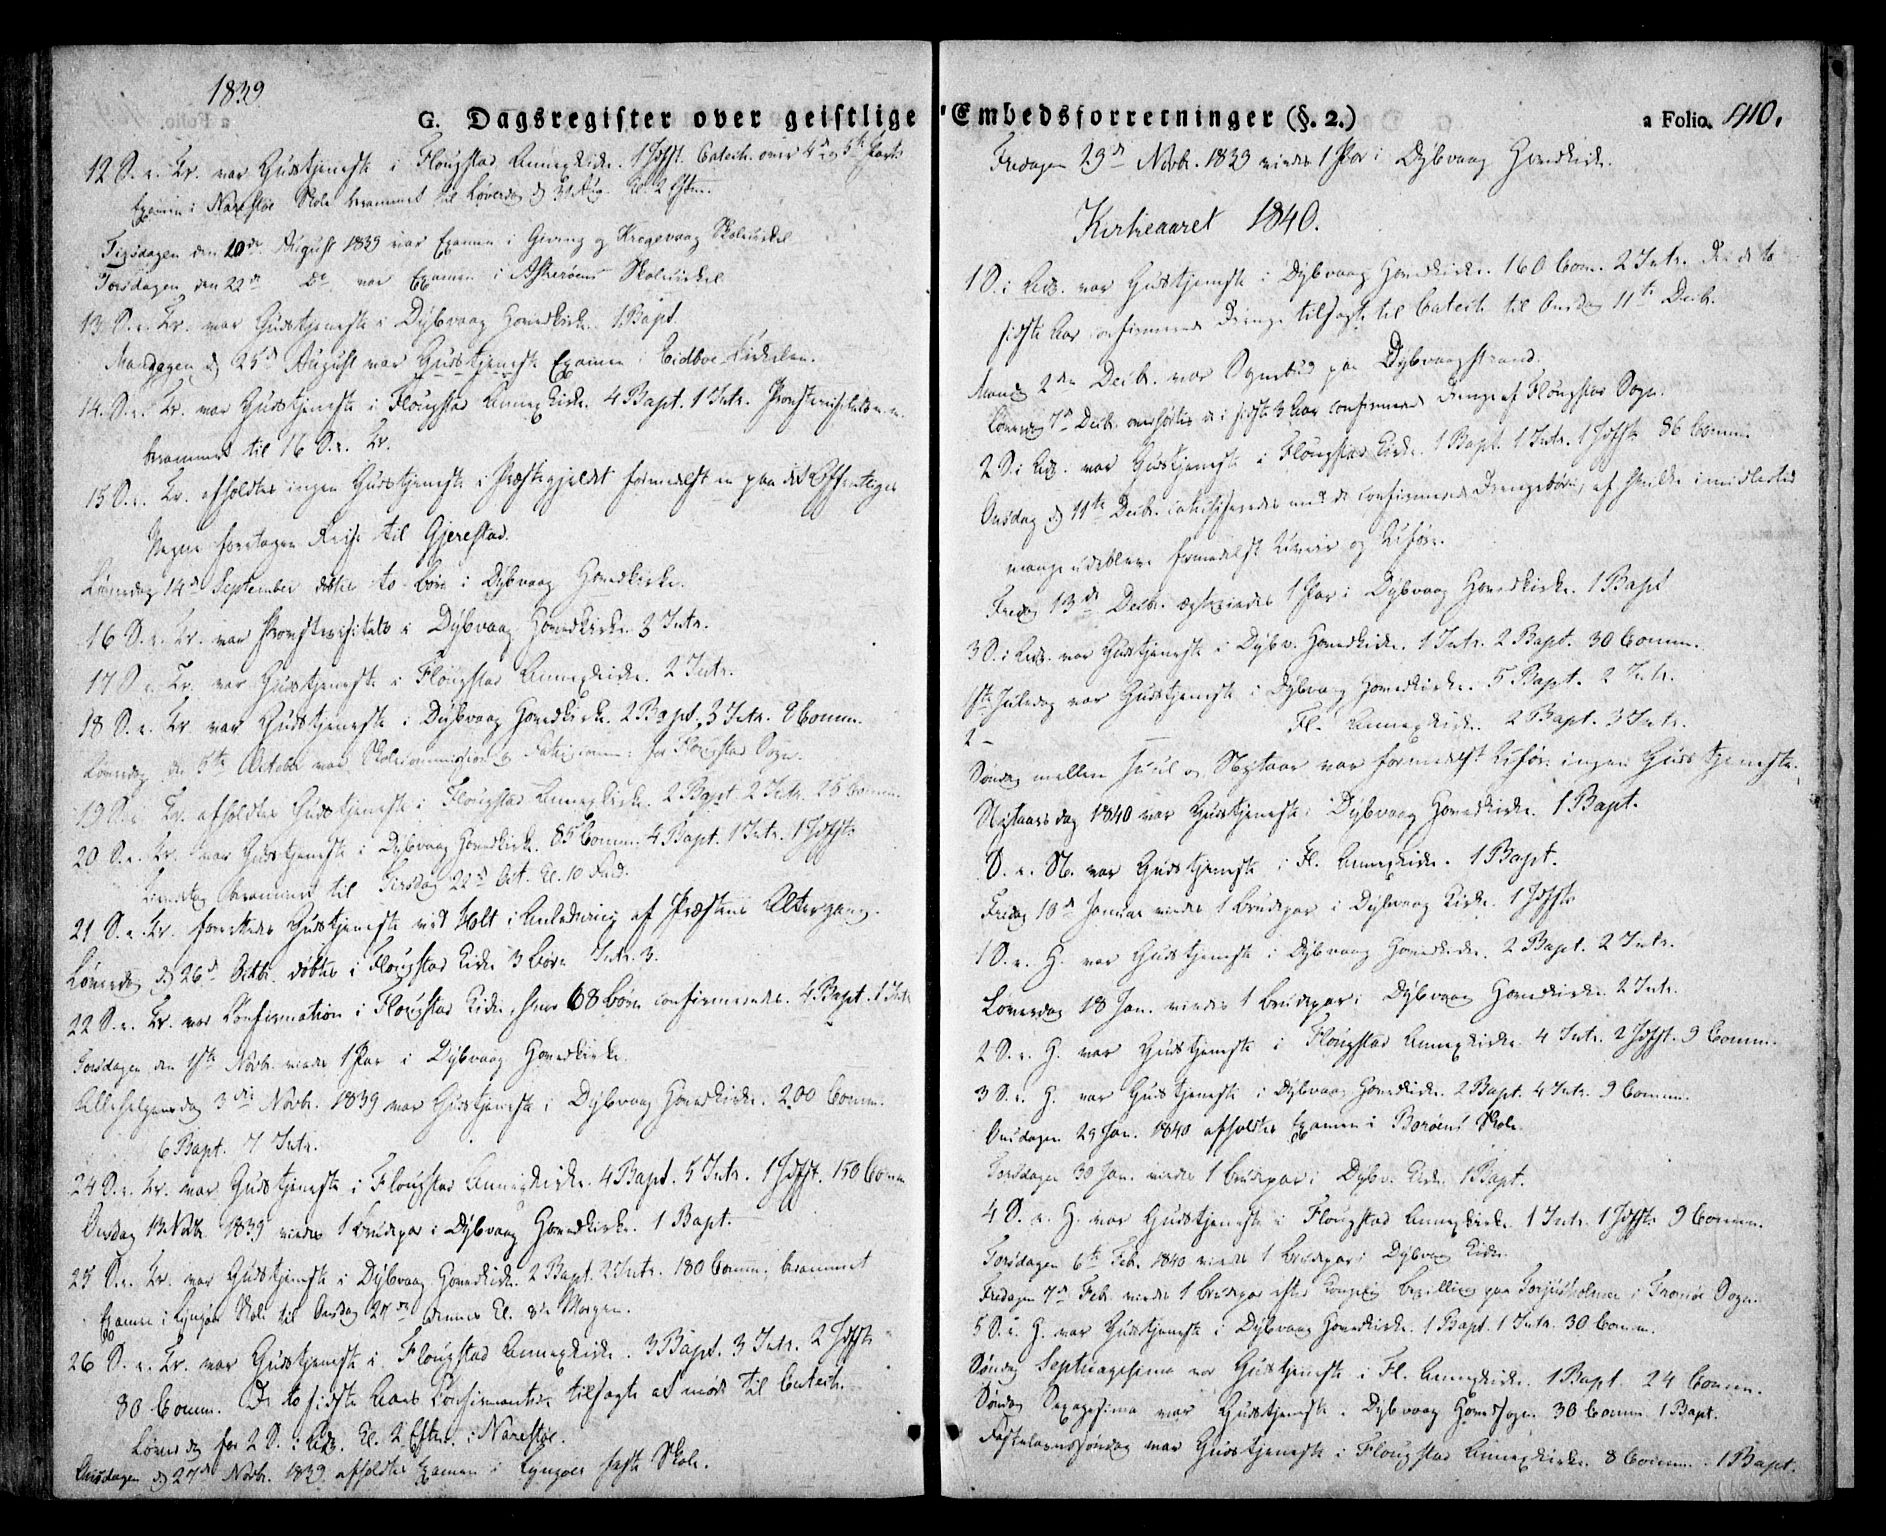 1839
G. Dagsregister over geistlige
12 S. e. Tr. var Gudstjeneste i Flougstad Annexkirke. 1 Jdfst. Catech. over 4de og 5te Part
Examen i Narestøe Skole berammet til Løverdag d. 31 Aug. Kl. 2 Eftm.
Tirsdagen den 20de August 1839 var Examen i Gjeving og Krogevaag Skolecirkel
Torsdagen den 22de Do var Examen i Askerøens Skolecirkel
13 S. e. Tr. var Gudstjeneste i Dybvaag Hovedkirke. 1 Bapt.
Mandagen d. 25de August var Gudstjeneste Examen i Eidboe Cirkelen.
14. S. e. Tr. var Gudstjeneste i Flougstad Annexkirke 4 Bapt. 1 Intr. Provstevisitats
berammet til 16 S. e. Tr.
15 S. e. Tr. afholdtes ingen Gudstjeneste i Præstegjeldet formedelst en paa det Offentliges
Vegne foretagen Reise til Gjerestad.
Løverdag 14de September døbtes to Børn i Dybvaag Hovedkirke.
16 S. e. Tr. var Provstevisitats i Dybvaag Hovedkirke. 3 Intr.
17 S. e. Tr. var Gudstjeneste i Flougstad Annexkirke. 2 Intr.
18 S. e. Tr. var Gudstjeneste i Dybvaag Hovedkirke. 2 Bapt. 3 Intr. 8 Comm.
Løverdag den 5te October var Skolecommission og for Flougstad Sogn.
19 S. e. Tr. afholdtes Gudstjeneste i Flougstad Annexkirke. 2 Bapt. 2 Intr. 26 Comm.
20 S. e. Tr. var Gudstjeneste i Dybvaag Hovedkirke. 85 Comm. 4 Bapt. 1 Intr. 1 Jdfst.
berammet til Tirsdag 22de Oct. Kl. 10 Form.
21 S. e. Tr. forrettedes Gudstjeneste ved Holt i Anledning af Præstens Altergang.
Løverdag d. 26de Octbr. døbtes i Flougstad Kirke 3 Børn Intr. 3.
22 S. e. Tr. var Confirmation i Flougstad Kirke, hvor 68 Børn confirmeredes. 4 Bapt. 1 Intr.
Torsdagen den 1ste Novbr. viedes 1 Par i Dybvaag Hovedkirke.
Allehelgensdag 3die Novbr. 1839 var Gudstjeneste i Dybvaag Hovedkirke. 200 Comm.
6 Bapt. 7 Intr.
24 S. e. Tr. var Gudstjeneste i Flougstad Annexkirke. 4 Bapt. 5 Intr. 1 Jdfst. 150 Comm
Onsdag 13 Novbr. 1839 viedes 1 Brudepar i Dybvaag Hovedkirke. 1 Bapt.
25 S. e. Tr. var Gudstjeneste i Dybvaag Hovedkirke. 2 Bapt. 2 Intr. 180 Comm. berammet
Examen i Lyngør Skole til Onsdag 27de dennes Kl. 8 Morgen.
26 S. e. Tr. var Gudstjeneste i Flougstad Annexkirke. 3 Bapt. 3 Intr. 2 Jdfst.
30 Comm. De to sidste Aars Confirmanter tilsagte at møde til Catech.
Løverdag før 2 S. i Adv. Kl. 2 Eftm. i Narestøe.
Onsdagen d. 27de Novbr. 1839 afholdtes Examen i Lyngøer faste Skole.
Embedsforretninger (§. 2.)
a Folio. 410.
Fredagen 29de Novbr. 1839 viedes 1 Par i Dybvaag Hovedkirke.
Kirkeaaret 1840.
1 S. i Adv. var Gudstjeneste i Dybvaag Hovedkirke. 160 Com. 2 Intr. De de to
sidste Aar confirmerede Drenge tilsagte til Catech. til Onsdag 11te Decbr.
Mandag 2den Decbr. var Sognebud paa Dybvaagstrand.
Løverdag 7de Decbr. overhørtes de i sidste 3 Aar confirmerede Drenge af Flougstad Sogn.
2 S. i Adv. var Gudstjeneste i Flougstad Kirke. 1 Bapt. 1 Intr. 1 Jdfst. 86 Comm.
Onsdag d. 11te Decbr. catechiseredes med de confirmerede Drengebørn, af hvilke imidlertid
mange udebleve formedelst Uveir og Uføre.
Fredag 13de Decbr. ægteviedes 1 Par i Dybvaag Hovedkirke. 1 Bapt
3 S. i Adv. var Gudstjeneste i Dybv. Hovedkirke. 1 Intr. 2 Bapt. 30 Comm.
1ste Juledag var Gudstjeneste i Dybvaag Hovedkirke. 5 Bapt. 2 Intr.
2 – — Fl. Annexkirke. 2 Bapt. 3 Intr.
Søndag mellem Juul og Nytaar var formedelst Uføre ingen Gudstjeneste.
Nytaarsdag 1840 var Gudstjeneste i Dybvaag Hovedkirke. 1 Bapt.
S. e. N. var Gudstjeneste i Fl. Annexkirke. 1 Bapt.
Fredag 10de Januar viedes 1 Brudepar i Dybvaag Kirke. 1 Jdfst.
1 S. e. H. var Gudstjeneste i Dybvaag Hovedkirke. 2 Bapt. 2 Intr.
Løverdag 18 Jan. viedes 1 Brudepar i Dybvaag Hovedkirke. 2 Intr.
2 S. e. H. var Gudstjeneste i Flougstad Annexkirke 4 Intr. 2 Jdfst. 9 Comm.
3 S. e. H. var Gudstjeneste i Dybvaag Hovedkirke. 2 Bapt. 4 Intr. 9 Comm.
Onsdagen 29 Jan. 1840 afholdtes Examen i Borøens Skole.
Torsdagen 30 Jan. viedes 1 Brudepar i Dybv. Kirke. 1 Bapt.
4 S. e. H. var Gudstjeneste i Flougstad Annexkirke. 1 Intr. 1 Jdfst. 9 Comm.
Torsdagen 6te Feb. 1840 viedes 1 Brudepar i Dybvaag Kirke.
Fredagen 7de Feb. viedes 1 Brudepar efter Kongelig Bevilling paa Torjusholmen i Tromøe Sogn.
5 S. e. H. var Gudstjeneste i Dybvaag Hovedkirke. 1 Bapt. 1 Intr. 30 Comm.
Søndag Septuagesima var Gudstjeneste i Fl. Annexkirke. 1 Bapt. 24 Comm.
Søndag Sexagesima var Gudstjeneste i Dybvaag Hovedsogn. 30 Comm. 1 Bapt.
Fastelavnssøndag var Gudstjeneste i Flougstad Annexkirke. 8 Comm. 1 Bapt.